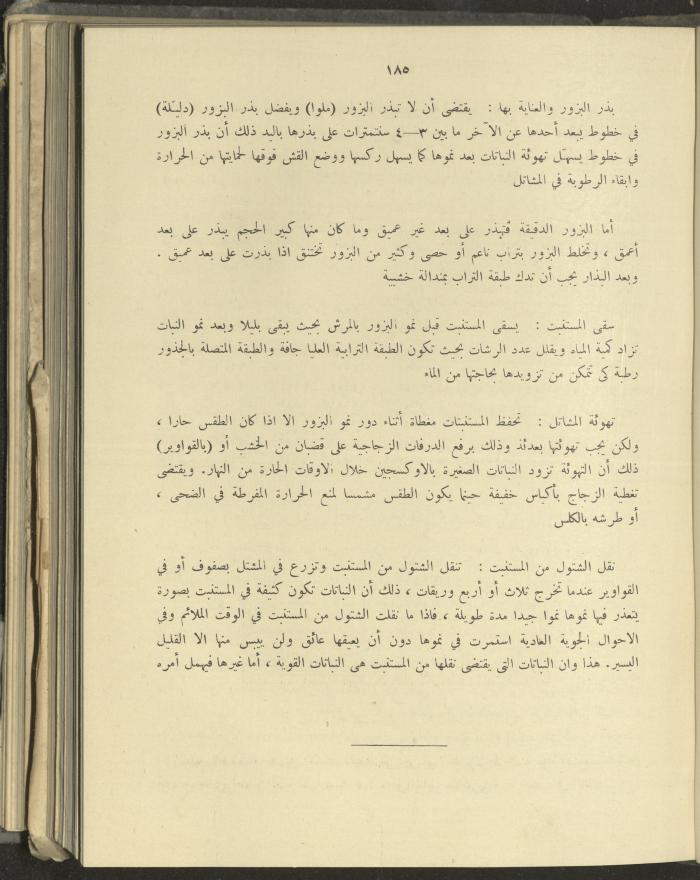 ١٨٥
بذر البزور والعناية بها : يقتضى أن لا تبذر البزور (ملوا) ويفضل بذر البزور (دليلة)
في خطوط يبعد أحدها عن الآخر ما بين ٣—٤ سنتمترات على بذرها باليد ذلك أن بذر البزور
في خطوط يسهل تهوئة النباتات بعد نموها كما يسهل ركسها ووضع القش فوقها لحمايتها من الحرارة
وابقاء الرطوبة في المشاتل
أما البزور الدقيقة فتبذر على بعد غير عميق وما كان منها كبير الحجم يبذر على بعد
أعمق ، وتخلط البزور بتراب ناعم أو حصى وكثير من البزور تختنق اذا بذرت على بعد عميق .
وبعد البذار يجب أن تدك طبقة التراب بمندالة خشبية
سقى المستنبت : يسقى المستنبت قبل نمو البزور بالمرش بحيث يبقى بليلا وبعد نمو النبات
تزاد كمية المياه ويقلل عدد الرشات بحيث تكون الطبقة الترابية العليا جافة والطبقة المتصلة بالجذور
رطبة كى تتمكن من تزويدها بحاجتها من الماء
تهوئة المشاتل : تحفظ المستنبتات مغطاة أثناء دور نمو البزور الا اذا كان الطقس حارا ،
ولكن يجب تهوئتها بعدئذ وذلك برفع الدرفات الزجاجية على قضبان من الخشب أو (بالقواوير)
ذلك أن التهوئة تزود النباتات الصغيرة بالاوكسجين خلال الاوقات الحارة من النهار. ويقتضى
تغطية الزجاج بأكياس خفيفة حينما يكون الطقس مشمسا لمنع الحرارة المفرطة في الضحى ،
أو طرشه بالكلس
نقل الشتول من المستنبت : تنقل الشتول من المستنبت وتزرع في المشتل بصفوف أو في
القواوير عندما تخرج ثلاث أو أربع وريقات ، ذلك أن النباتات تكون كثيفة في المستنبت بصورة
يتعذر فيها نموها نموا جيدا مدة طويلة ، فاذا ما نقلت الشتول من المستنبت في الوقت الملائم وفي
الاحوال الجوية العادية استمرت في نموها دون أن يعيقها عائق ولن ييبس منها الا القليل
اليسير. هذا وان النباتات التى يقتضى نقلها من المستنبت هى النباتات القوية ، أما غيرها فيهمل أمره